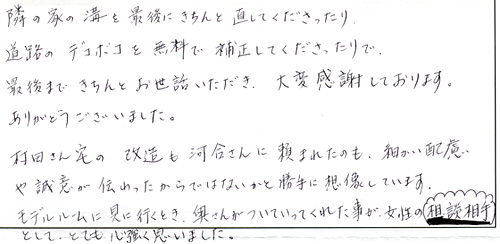 隣の家の溝を最後にきちんと直してくださったり、
道路のデコボコを無料で補正してくださったりで、
最後まできちんとお世話いただき、大変感謝しております。
ありがとうございました。
村田さん宅の改造も河合さんに頼まれたのも、細かい配慮
や誠意が伝わったからではないかと勝手に想像しています。
モデルルームに見に行くとき、奥さんがついていってくれた事が、女性の相談相手
として、とても心強く思いました。